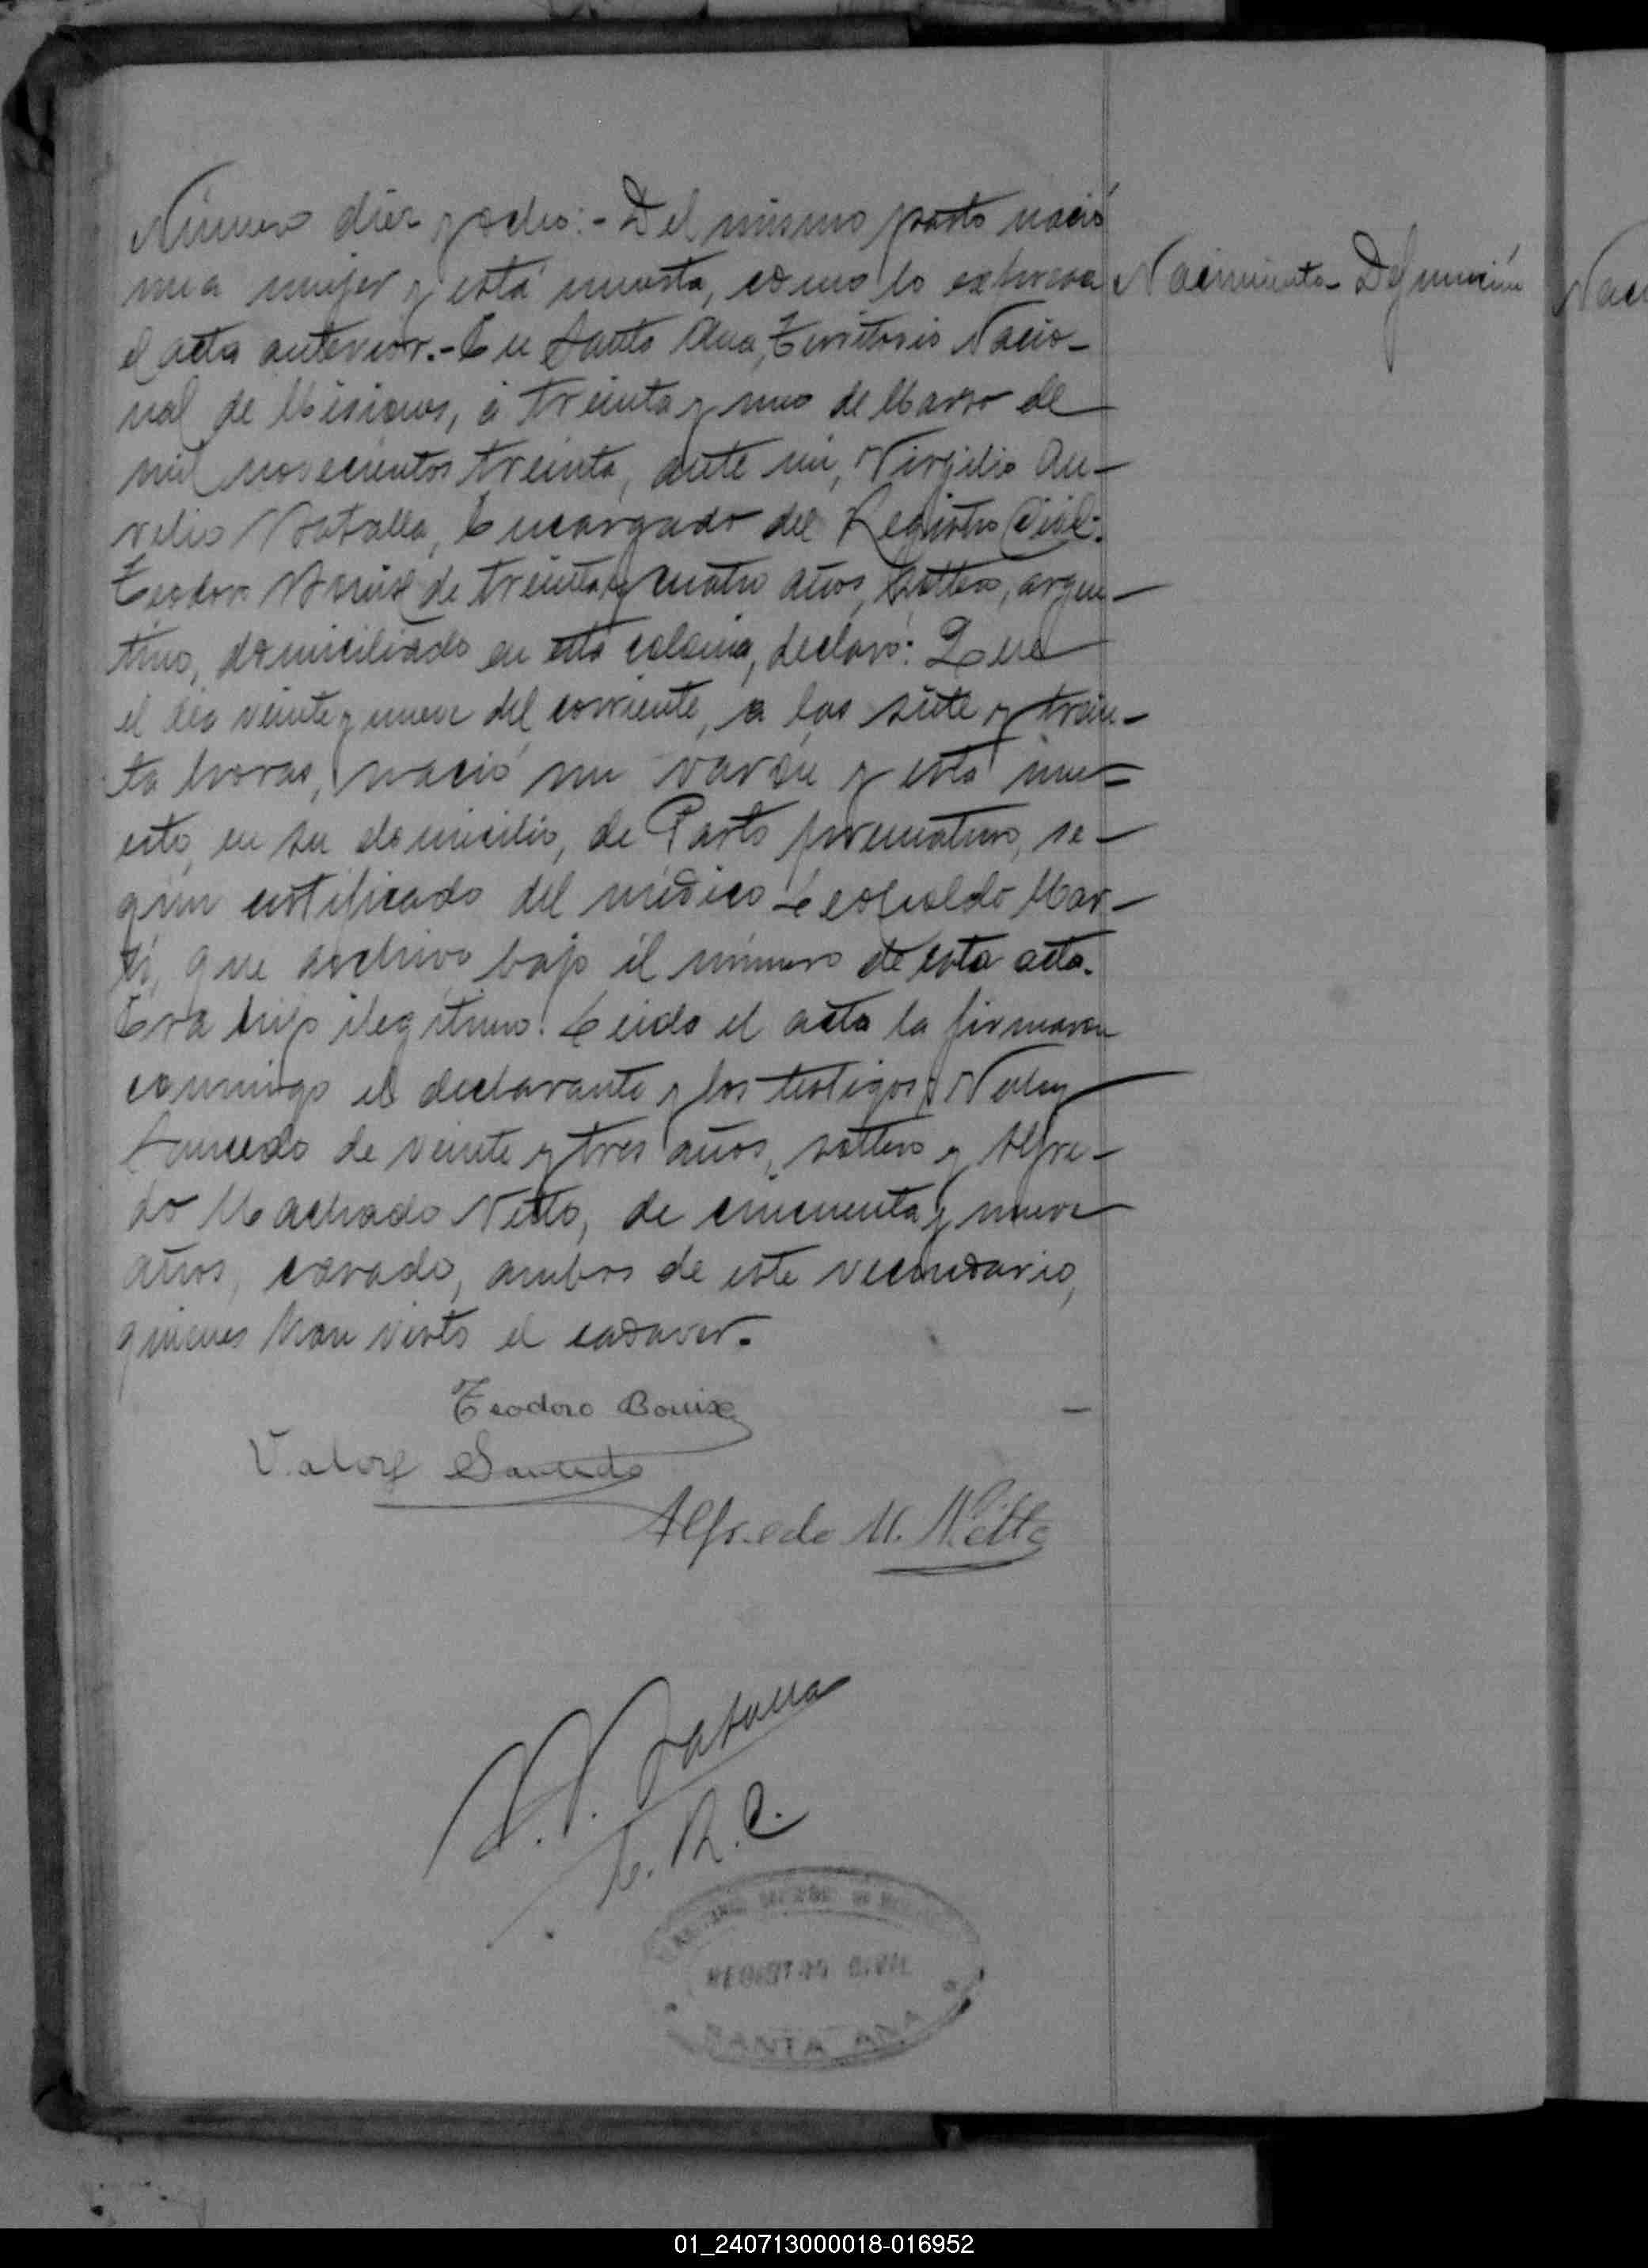 Número diez y ocho:- Del mismo parto nació
una mujer y está muerta, como lo expresa
el acta anterior.- En Santa Ana, Territorio Nacio-
nal de Misiones, á treinta y uno de Marzo de
mil novecientos treinta, ante mi, Virgilio Au-
relio Batalla, Encargado del Registro Civil.
Teodoro Bouix de treinta y cuatro años, soltero, argen-
tino, domiciliado en esta colonia, declaró: Que
el dia veinte y nueve del corriente, a las siete y trein-
ta horas, nació un varón y está mu-
erto, en su domicilio, de Parto prematuro, se-
gún certificado del médico Leopoldo Mar-
ti, que archivo bajo el número de esta acta.
Era hijo ilegítimo. Leida el acta la firmaron
conmigo el declarante y los testigos:
Saucedo de veinte y tres años, soltero y Alfre-
do Machado Netto, de cincuenta y nueve
años, casado, ambos de este vecindario,
quienes han visto el cadaver.-
Nacimiento- Defunción
Teodoro Bouix
Saucedo
Alfredo M. Netto
V. A. Batalla
E. R. C.
REGISTRO CIVIL
SANTA ANA
01_240713000018-016952